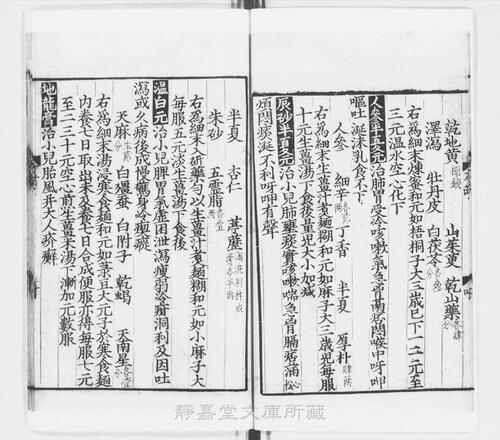 乾地黄捌錢 山茱萸 乾山藥各肆分
澤瀉 牡丹皮 白茯苓
右為細末煉蜜和元如梧桐子大三歲已下一二元至
三元温水空心化下
人參半夏元治肺胃受冷咳嗽氣急胷膈痞悶喉中呀呷
嘔吐涎沫乳食不下
人參 細辛 丁香 半夏 厚朴
右為細末生薑汁煮麵糊和元如麻子大三歲兒每服
十元生薑湯下食後量兒大小加減
辰砂半夏元治小兒肺壅痰實咳嗽喘急胷膈痞滿心忪
煩悶痰涎不利呀呷有聲
半夏 杏仁 葶藶湯洗別杵成膏各半兩
朱砂 五靈脂各壹兩
右為細末研藥勻以生薑汁煮麵糊和元如小麻子大
每服五元淡生薑湯下食後
温白元治小兒脾胃氣虛困泄瀉瘦弱冷疳洞利及因吐
瀉或久病後成慢驚身冷瘈瘲
天麻 白殭蠶 白附子 乾蝎 天南星各壹分
右為細末湯浸寒食麵和元如菉豆大元子於寒食麵
內養七日取出末及養七日合成便服亦得每服七元
至二三十元空心煎生薑米湯下漸加元數服
地龍膏治小兒胎風并大人疥癬
靜嘉堂文庫所蔵